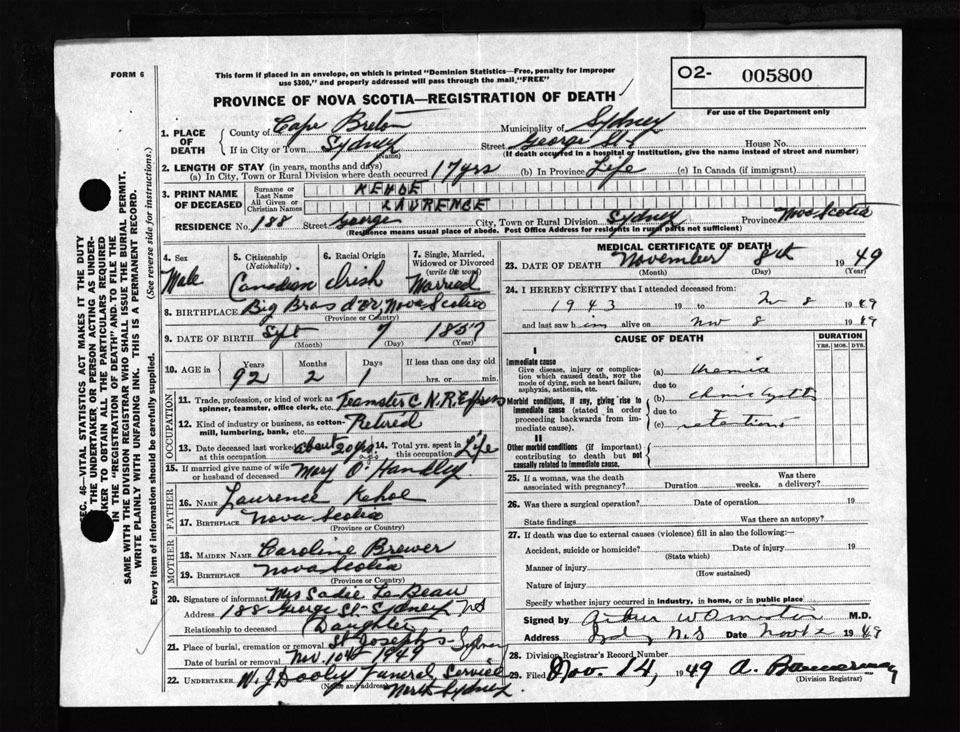 FORM 6
This form if placed in an envelope, on which is printed "Dominion Statistics—Free, penalty for improper
use $300," and properly addressed will pass through the mail "FREE"
O2- 005800
For use of the Department only
PROVINCE OF NOVA SCOTIA—REGISTRATION OF DEATH
1. PLACE OF DEATH
County of Cape Breton Municipality of Sydney
If in City or Town Sydney (Name) Street George St House No.
(If death occurred in a hospital or institution, give the name instead of street and number)
2. LENGTH OF STAY (in years, months and days)
(a) In City, Town or Rural Division where death occurred 17 yrs (b) In Province Life (c) In Canada (if immigrant)
3. PRINT NAME OF DECEASED
Surname or Last Name KEHOE
All Given or Christian Names LAURENCE
RESIDENCE No. 188 Street George City, Town or Rural Division Sydney Province Nova Scotia
(Residence means usual place of abode. Post Office Address for residents in rural parts not sufficient)
4. Sex
Male
5. Citizenship (Nationality)
Canadian
6. Racial Origin
Irish
7. Single, Married, Widowed or Divorced (write the word)
Married
8. BIRTHPLACE Big Bras d'Or, Nova Scotia
(Province or Country)
9. DATE OF BIRTH Sept 7 1857
(Month) (Day) (Year)
10. AGE in Years Months Days If less than one day old
92 2 1 hrs. or min.
OCCUPATION
11. Trade, profession, or kind of work as spinner, teamster, office clerk, etc. Teamster C.N.R. Express
12. Kind of industry or business, as cotton-mill, lumbering, bank, etc. Retired
13. Date deceased last worked at this occupation about 20 yrs ago
14. Total yrs. spent in this occupation Life
15. If married give name of wife or husband of deceased Mary O'Handley
FATHER
16. NAME Laurence Kehoe
17. BIRTHPLACE Nova Scotia
(Province or Country)
MOTHER
18. MAIDEN NAME Caroline Brewer
19. BIRTHPLACE Nova Scotia
(Province or Country)
20. Signature of informant Mrs Sadie Le Beau
Address 188 George St. Sydney NS
Relationship to deceased Daughter
21. Place of burial, cremation or removal St Josephs - Sydney
Date of burial or removal Nov. 10th 1949
22. UNDERTAKER W. J. Dooley Funeral Service
(Name and address) North Sydney.
MEDICAL CERTIFICATE OF DEATH
23. DATE OF DEATH November 8th 1949
(Month) (Day) (Year)
24. I HEREBY CERTIFY that I attended deceased from:
1943 19 to Nov 8 1949
and last saw him alive on Nov 8 1949
CAUSE OF DEATH
DURATION
YRS. MOS. DYS.
I
Immediate cause
Give disease, injury or complication which caused death, not the mode of dying, such as heart failure, asphyxia, asthenia, etc.
(a) Uremia
due to
Morbid conditions, if any, giving rise to immediate cause (stated in order proceeding backwards from immediate cause).
(b) Chronic
due to
(c) retention
II
Other morbid conditions (if important) contributing to death but not causally related to immediate cause.
25. If a woman, was the death associated with pregnancy? Duration weeks. Was there a delivery?
26. Was there a surgical operation? Date of operation 19
State findings Was there an autopsy?
27. If death was due to external causes (violence) fill in also the following:
Accident, suicide or homicide? (State which) Date of injury 19
Manner of injury
(How sustained)
Nature of injury
Specify whether injury occurred in industry, in home, or in public place
Signed by M.D.
Address Sydney N.S Date Nov 12 1949
28. Division Registrar's Record Number
29. Filed Nov. 14, 1949 A.
(Division Registrar)
SEC. 46—VITAL STATISTICS ACT MAKES IT THE DUTY
OF THE UNDERTAKER OR PERSON ACTING AS UNDER-
TAKER TO OBTAIN ALL THE PARTICULARS REQUIRED
IN THE "REGISTRATION OF DEATH" AND TO FILE THE
SAME WITH THE DIVISION REGISTRAR WHO SHALL ISSUE THE BURIAL PERMIT.
WRITE PLAINLY WITH UNFADING INK. THIS IS A PERMANENT RECORD.
Every item of information should be carefully supplied. (See reverse side for instructions.)